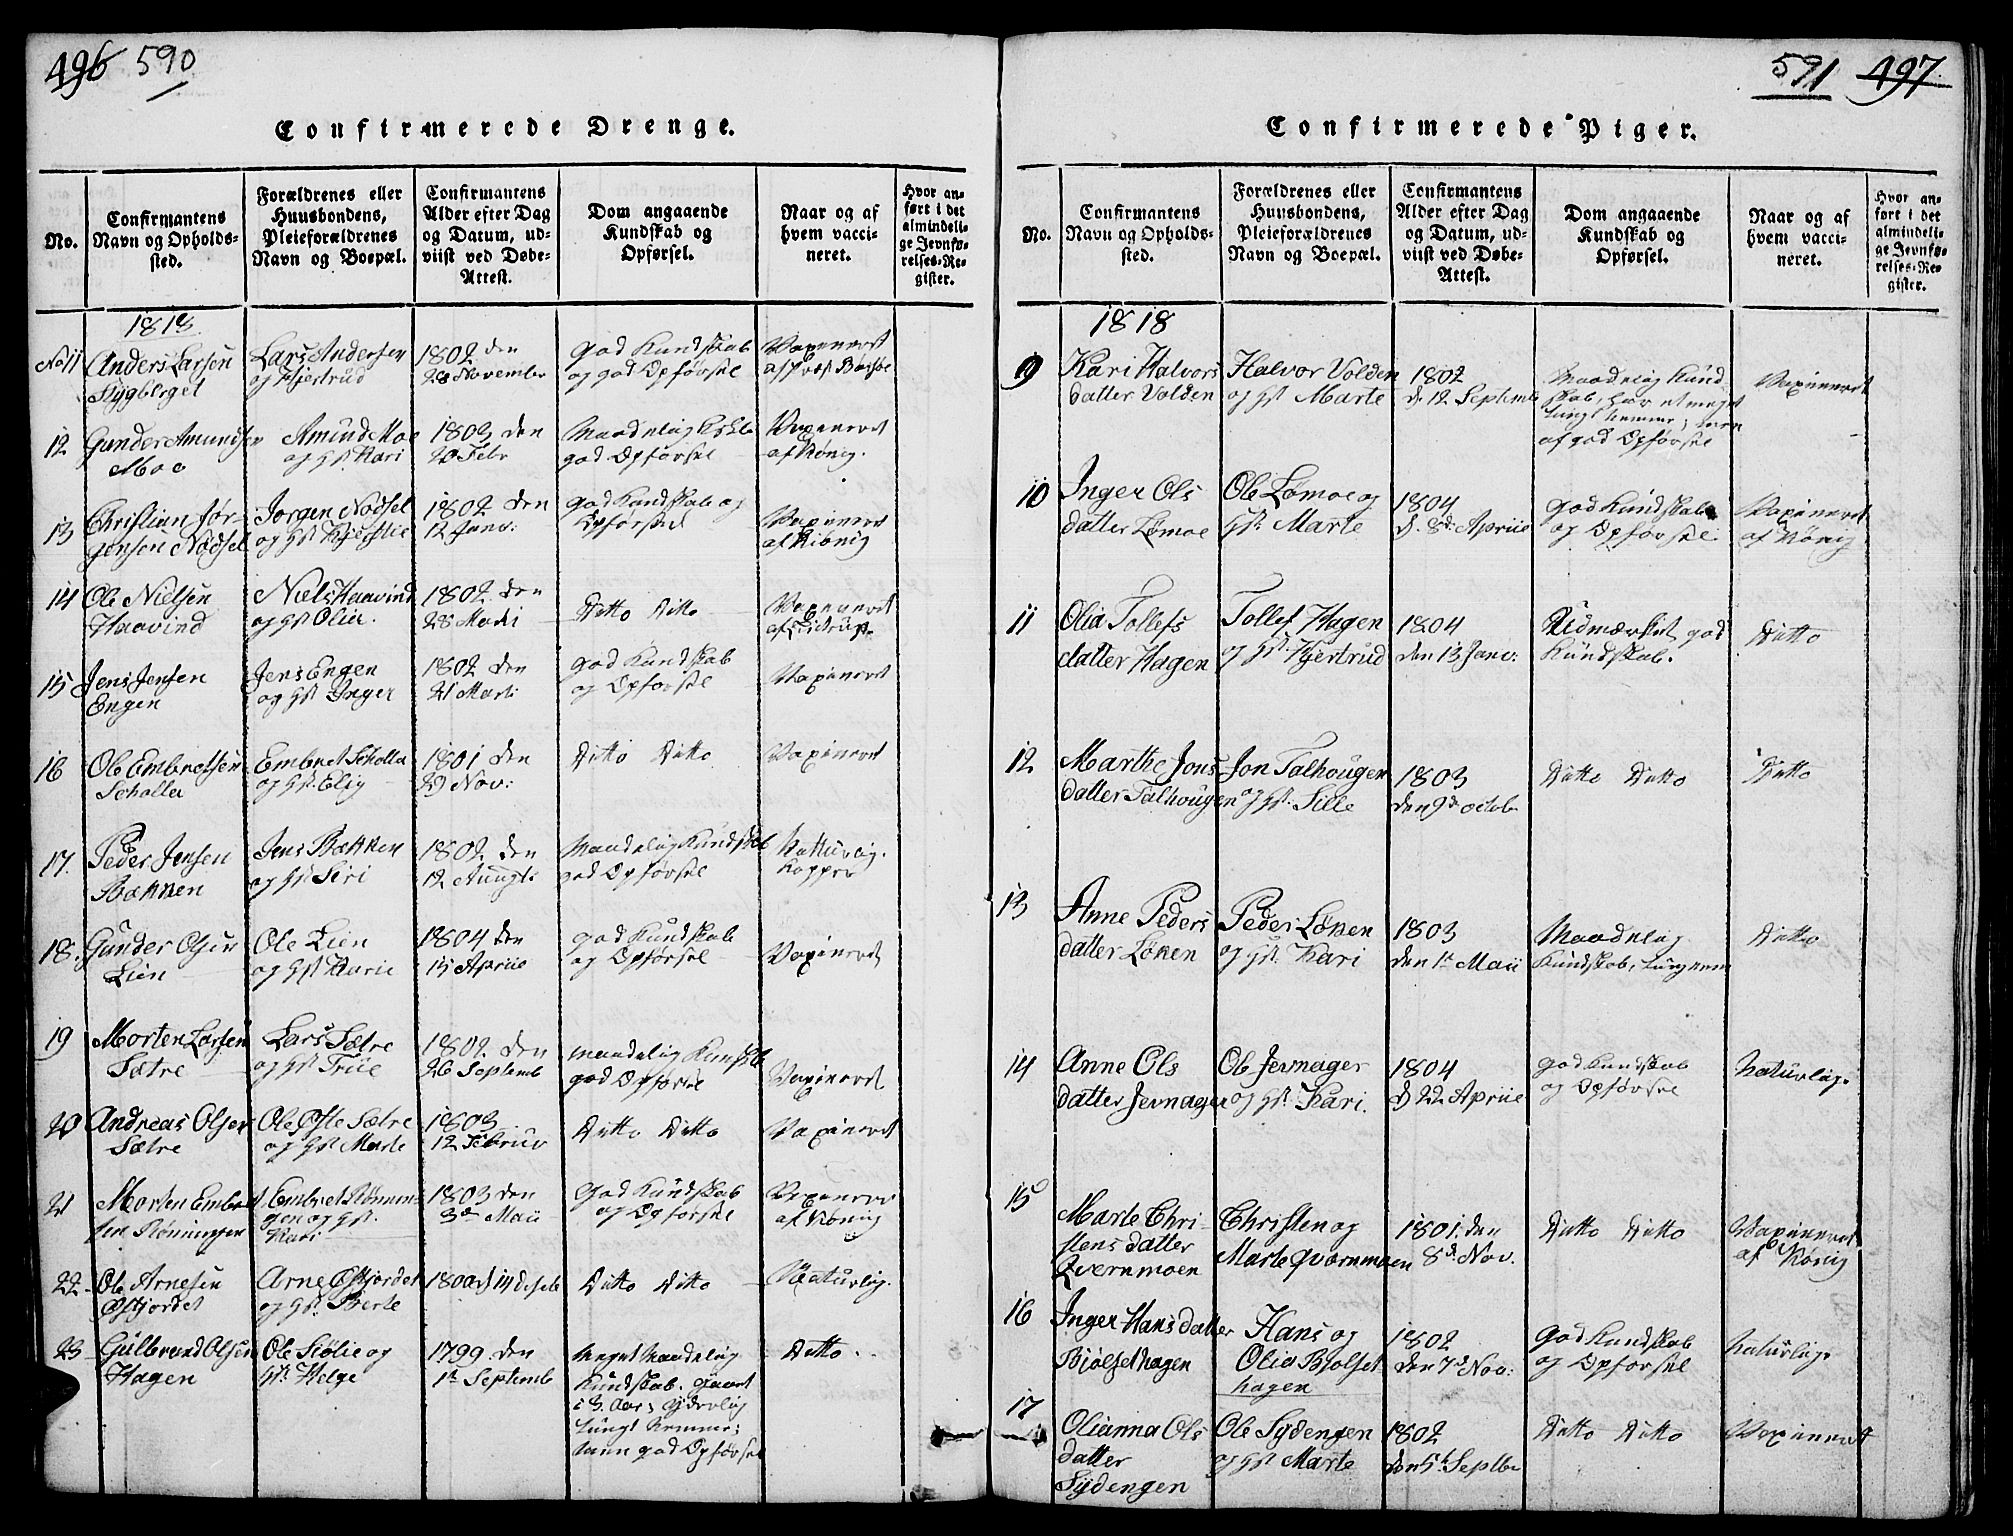 496 590
Confirmerede Drenge.
No.
Confirmantens
Navn og Opholds-
sted.
Forældrenes eller
Huusbondens,
Pleieforældrenes
Navn og Boepæl.
Confirmantens
Alder efter Dag
og Datum, ud-
viist ved Døbe-
Attest.
Dom angaaende
Kundskab og
Opførsel.
Naar og af
hvem vacci-
neret.
Hvor an-
ført i det
almindeli-
ge Jevnfø-
relses-Re-
gister.
1818.
No 11
Anders Larsen
Rygberget
Lars Andersen
og Hjertrud
1802 den
28 November
god Kundskab
og god Opførsel
Vaxineret
af
12
Gunder Amundsen
Moe
Amund Moe
og Hst. Kari
1803 den
20 Febr
Maadelig
god Opførsel
Vaxineret
af König.
13
Christian Jør-
gensen Nødsel
Jørgen Nødsel
og Hst Kjerstie
1802 den
12 Janv:
god Kundskab og
Opførsel
Vaxineret
af König
14
Ole Nielsen
Haavind
Niels Haavind
og Hst Olia.
1802 den
28 Martii
Ditto Ditto
Vaxineret
af
15
Jens Jensen
Engen
Jens Engen
og Hst Inger
1802 den
21 Marti
god Kundskab
og Opførsel
Vaxineret
16
Ole Embretsen
Scholla
Embret Scholla
og Hst. Elig
1801 den
29 Nov:
Ditto Ditto
Vaxineret
17.
Peder Jensen
Bækken
Jens Bækken
og Hst Siri
1802 den
12 Augusti
Maadelig Kundskab
god Opførsel
Naturlig.
Kopper
18.
Gunder Olsen
Lien
Ole Lien
og Hst Karie
1804 den
15 Aprile
god Kundskab
og Opførsel
Vaxineret
19
Morten Larsen
Sætre
Lars Sætre
og Hst Trüe
1802. den
26 Septemb
maadelig Kundskb
god Opførsel
Vaxineret
20
Andreas Olsen
Sætre
Ole Øfte Sætre
og Hst Marte
1803
12 Februv
Ditto Ditto
Vaxineret
21
Morten Embret
sen Rønningen
Embret Rønnin
gen og Hst.
Kari
1803 den
3de Maii
God Kundskab
og Opførsel
Vaxineret
af König
22
Ole Arnesen
Østjordet
Arne Østjordet
og Hst. Berte
1800 d 14 Desebr
Ditto Ditto
Naturlig.
23
Gulbrand Olsen
Hagen
Ole Sølie og
Hst. Helge
1799 den
1t Septemb
Meget Maadelig
Kundskab. gaaet
i 3. Aar; yderlig
tungt Nemme;
men god Opførsel
Ditto.
591 497.
Confirmerede Piger.
No.
Confirmantens
Navn og Opholds-
sted.
Forældrenes eller
Huusbondens,
Pleieforældrenes
Navn og Boepæl.
Confirmantens
Alder efter Dag
og Datum, ud-
viist ved Døbe-
Attest.
Dom angaaende
Kundskab og
Opførsel.
Naar og af
hvem vacci-
neret.
Hvor an-
ført i det
almindeli-
ge Jevnfø-
relses-Re-
gister.
1818
9
Kari Halvors
datter Volden
Halvor Volden
og Hst Marte
1802
d. 12 Septemb
Maadelig Kund-
skab, har et meget
tungt nemme; men
af god Opførsel
Vaxineret
10
Inger Ols
datter Lømoe
Ole Lømoe og
Hst. Marte
1804
d. 8d. Aprile
God Kundskab
og Opførsel.
Vaxineret
af König
11
Olia Tollefs
datter Hagen
Tollef Hagen
og Hst. Hjertrud
1804
den 13 Janv:
Udmærket god
Kundskab.
Ditto
12
Marthe Jons
datter Talhougen
Jon Talhougen
og Hst. Sille
1803
den 9d octob
Ditto Ditto
Ditto
13
Anne Peders
datter Løken
Peder Løken
og Hst. Kari
1803
den 1t Maii
Maadelig
Kundskab, tung nem
Ditto
14
Anne Ols
datter Jevnager
Ole Jevnager
og Hst. Kari.
1804
d 22 Aprile
god Kundskab
og Opførsel
Naturlig.
15
Marte Chri-
stensdatter
Qvernmoen
Christen og
Marte qvernmoen
1801. den
8d. Nov.
Ditto Ditto
Vaxineret
af König
16
Inger Hansdatter
Bjølsethagen
Hans og
Olia Bjølset
hagen
1802
den 7d Nov:
God Kundskab
og Opførsel
Naturlig.
17
Olianna Ols
datter
Sydengen
Ole Sydengen
og Hst Marte
1802
den 5t Septbr
Ditto Ditto
Vaxineret